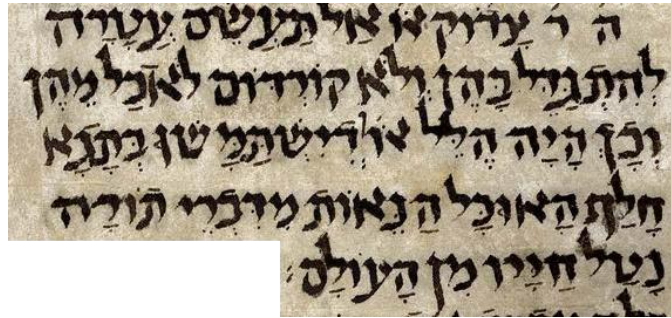 ה ר׳ צָדוֹק או׳ אַל תַּעֲשֵׂם עֲטָרָה
לְהִתְגַּדֵּל בָּהֶן וְלֹא קוֹרְדּוֹם לֹאכַל מֵהֶן
וְכָךְ הָיָה הִלֵּל או׳ דְּיִשְׁתַּמַּשׁ בְּתָגָא
חֲלָף הָאוֹכֵל הֲנָאוֹת מִדִּבְרֵי תוֹרָה
נָטַל חַיָּיו מִן הָעוֹלָם׃